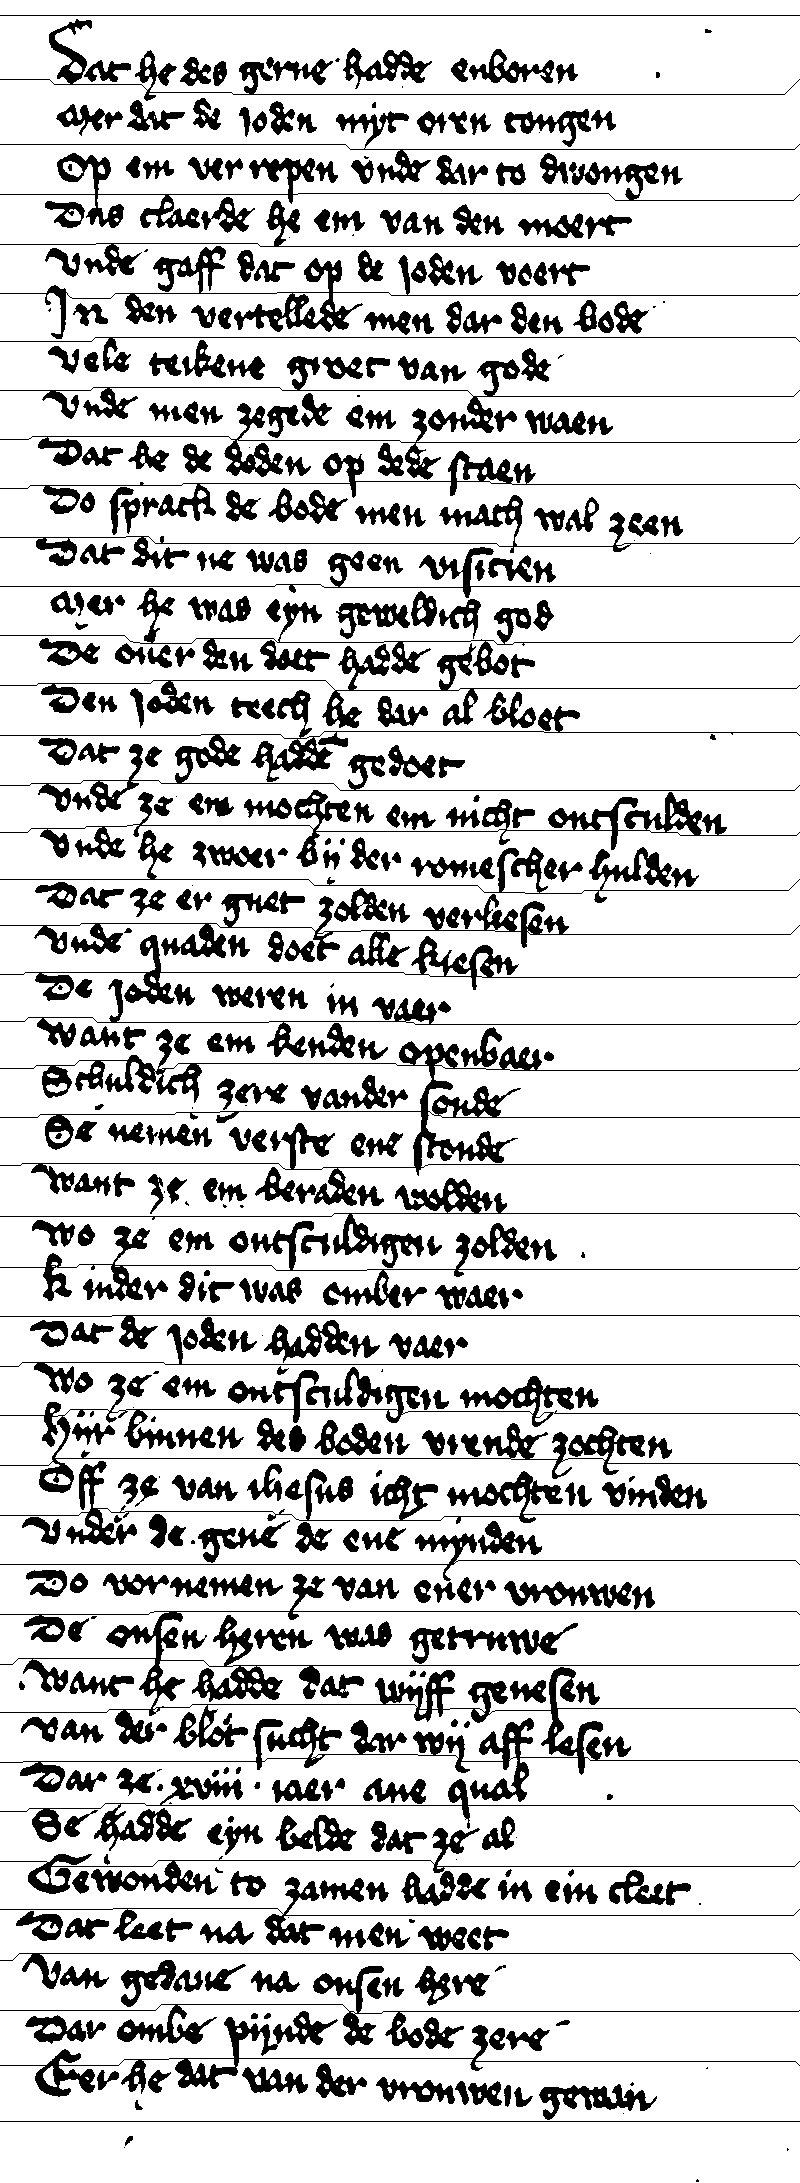 Dat he des gerne hadde enboren
Mer dat de Joden myt oren tongen
Op em ver repen vnde dar to dwongen
Dus claerde he em van den moert
Vnde gaff dat op de Joden voert
In den vertellede men dar den bode
Vele teikene groet van gode
Vnde men zegede em zonder waen
Dat he de doden op dede staen
Do sprack de bode men mach wal zeen
Dat dit ne was geen visicien
Mer he was eyn geweldich god
De ouer den doet hadde gebot
Den Joden teech he dar al bloet
Dat ze gode hadde gedoet
Vnde ze em mochten em nicht ontsculden
Vnde he zwoer bij der romescher hulden
Dat ze er guet zolden verliesen
Vnde quaden doet alle kiesen
De Joden weren in vaer
Want ze em kenden openbaer
Schuldich zere vander sonde
Se nemen verste ene stonde
Want ze em beraden wolden
Wo ze em ontsculdigen zolden
Kinder dit was omber waer
Dat de Joden hadden vaer
Wo ze em ontsculdigen mochten
Hijr binnen des boden vrende zochten
Off ze van ihesus icht mochten vinden
Vnder de gene de ene mynden
Do vornemen ze van ener vrouwen
De onsen heren was getruwe
Want he hadde dat wijff genesen
Van der blot sucht dar wij aff lesen
Dar ze .xviii. iaer ane qual
Se hadde eyn belde dat ze al
Gewonden to zamen hadde in ein cleet
Dat leet na dat men weet
Van gedane na onsen here
Dar ombe pijnde de bode zere
Eer he dat van der vrouwen gewan